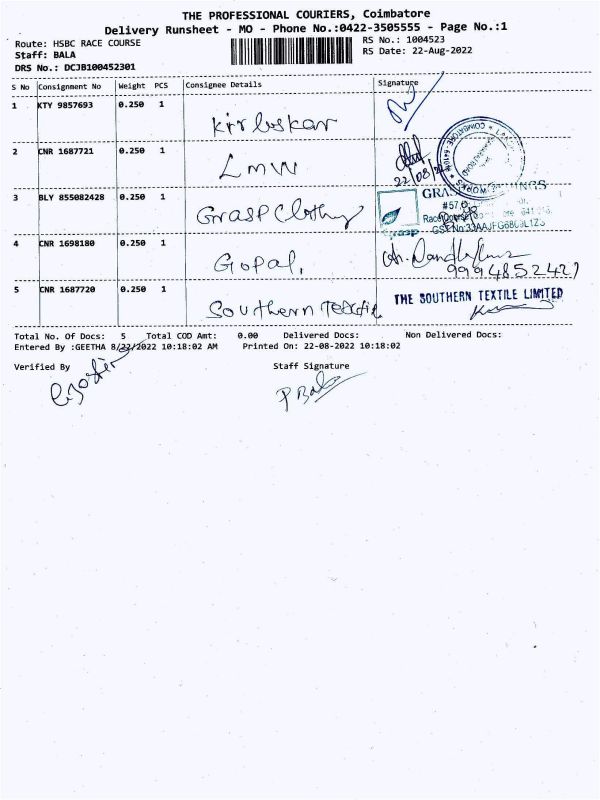 THE PROFESSIONAL COURIERS, Coimbatore
Delivery Runsheet - MO - Phone No.:0422-3505555 - Page No.:1
Route: HSBC RACE COURSE RS No.: 1004523
Staff: BALA RS Date: 22-Aug-2022
DRS No.: DCJB100452301
S No Consignment No Weight PCS Consignee Details Signature
1 KTY 9857693 0.250 1 Kirloskar
2 CNR 1687721 0.250 1 LMW
22/08/22
3 BLY 855082428 0.250 1 Grasp Clothing
#57,
grasp
4 CNR 1698180 0.250 1 Gopal.
9994852427
5 CNR 1687720 0.250 1 Southern Textile
THE SOUTHERN TEXTILE LIMITED
Total No. Of Docs: 5 Total COD Amt: 0.00 Delivered Docs: Non Delivered Docs:
Entered By :GEETHA 8/22/2022 10:18:02 AM Printed On: 22-08-2022 10:18:02
Verified By Staff Signature
P Bala